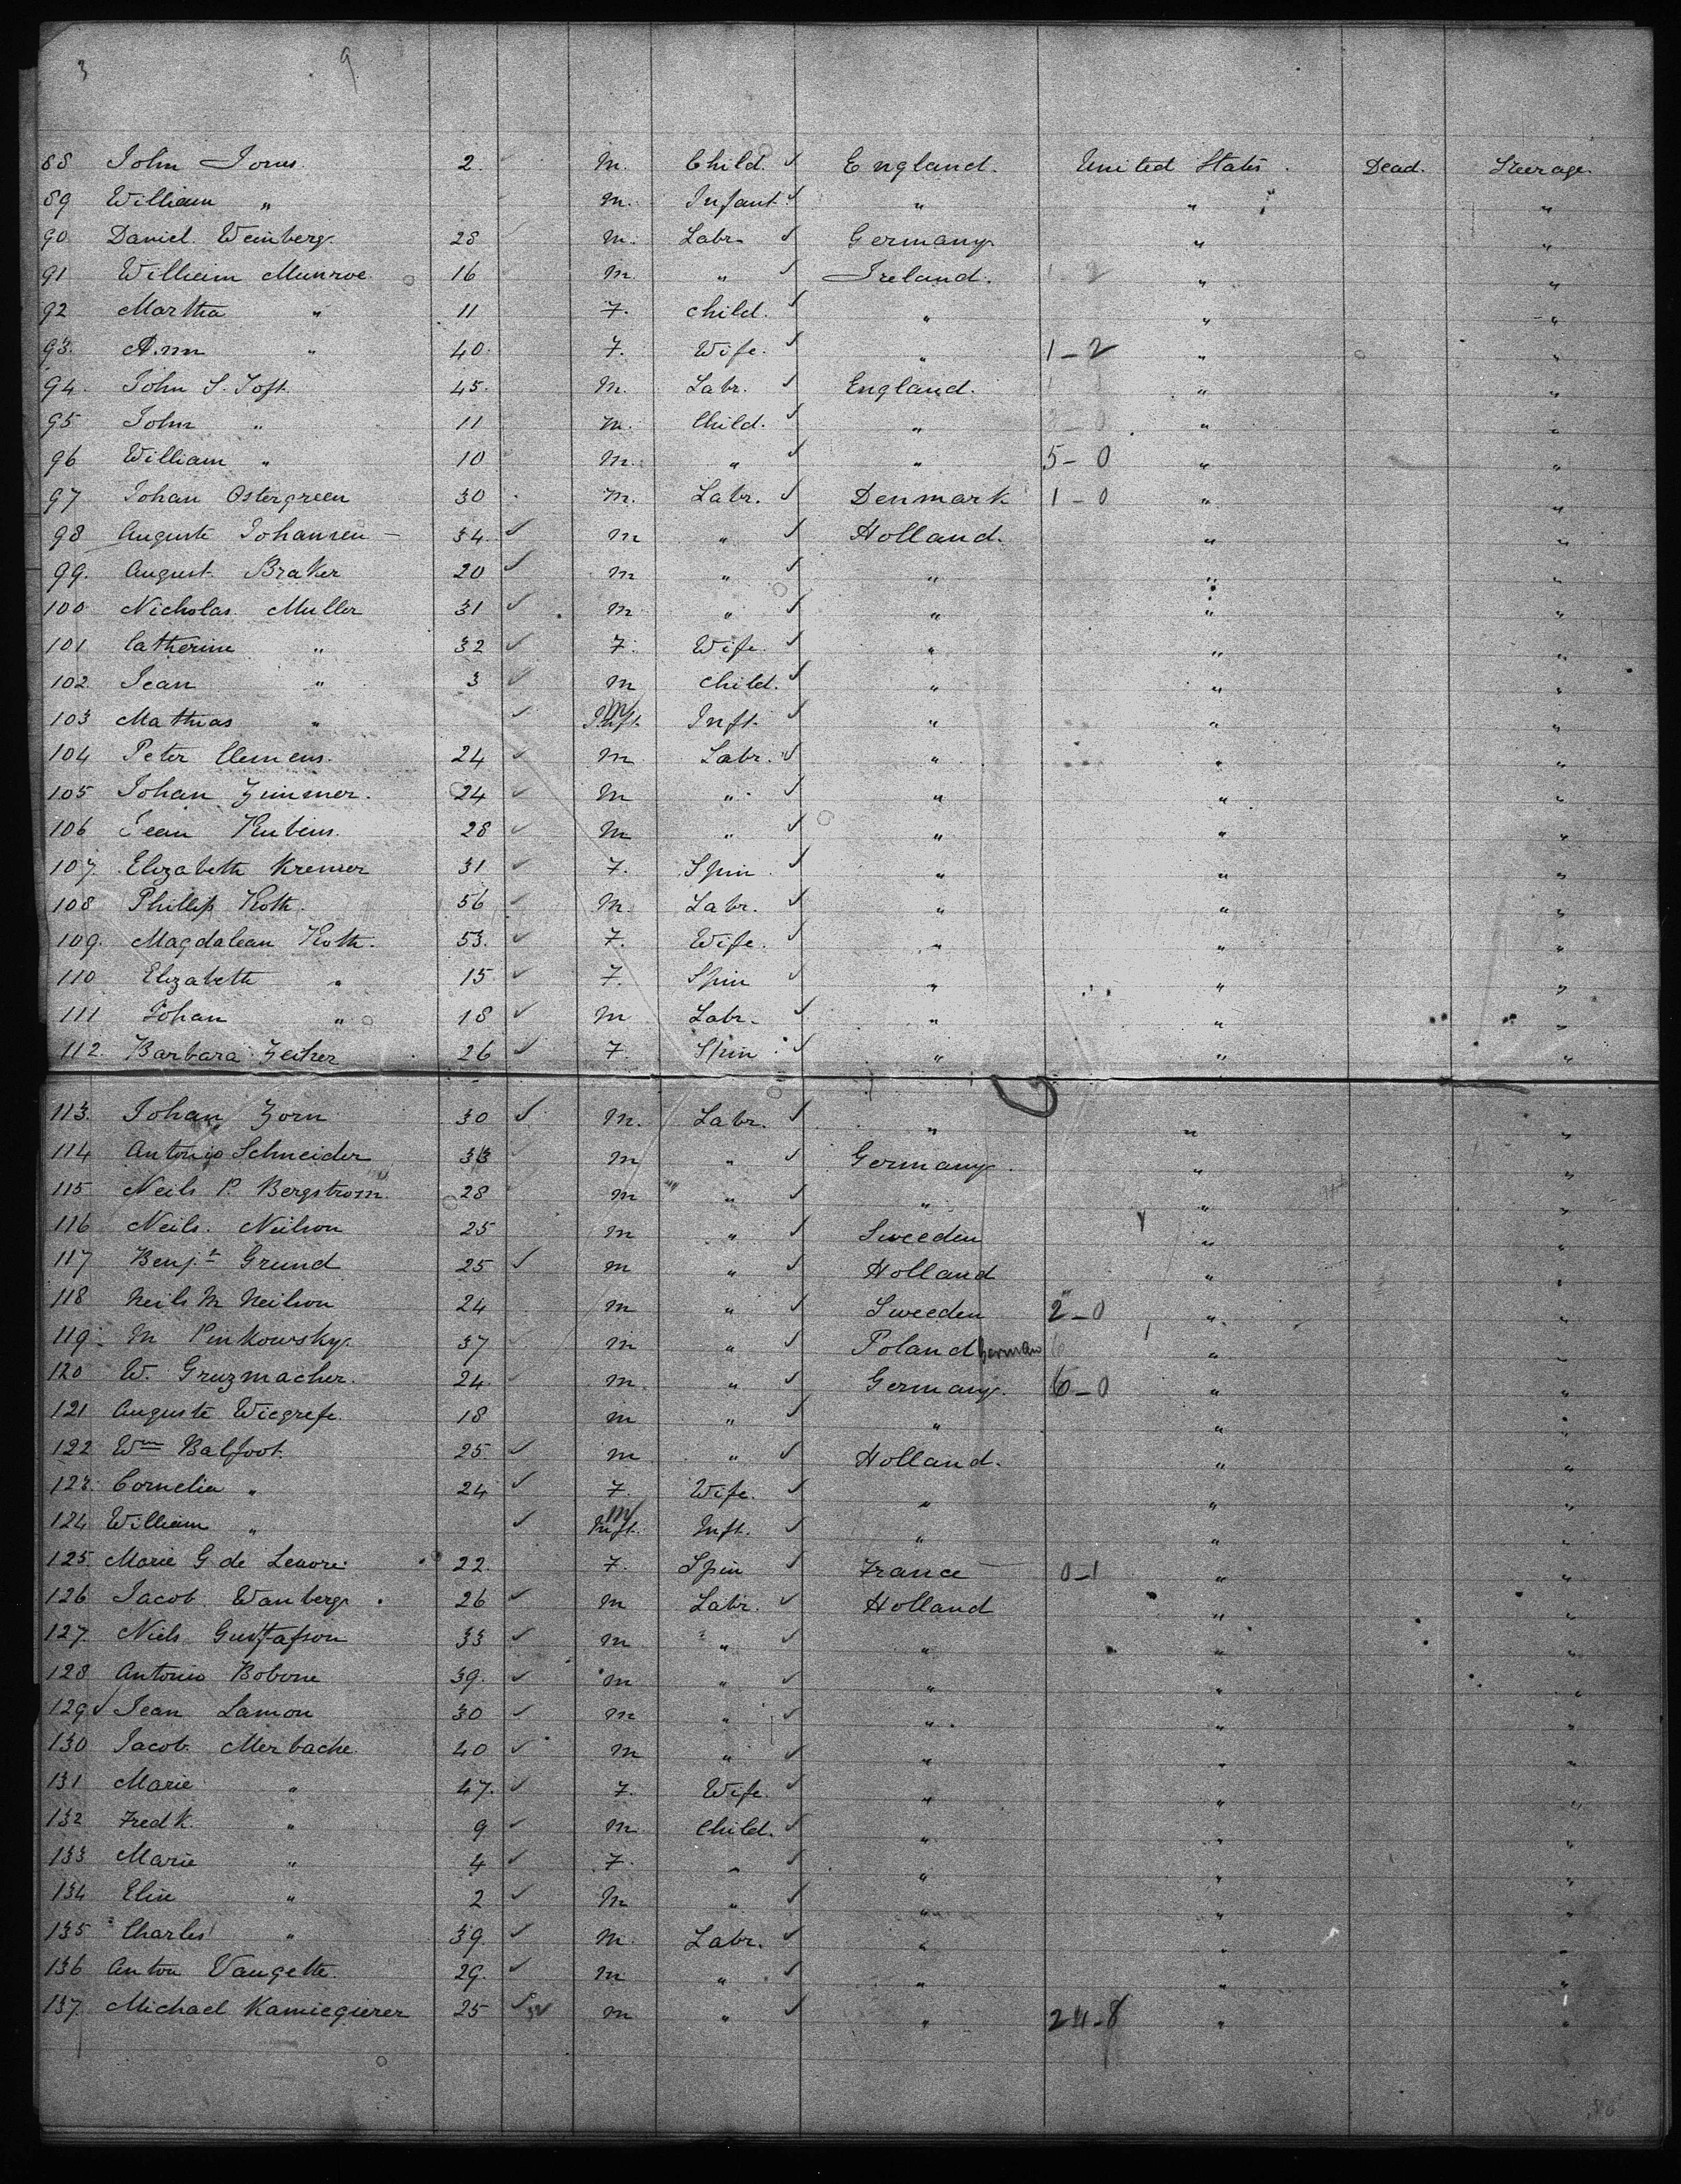 3 9
88 John Jones. 2. M. Child. ✓ England. United States. Dead. Steerage.
89 William " M. Infant ✓ " " "
90 Daniel Weinberg. 28 M. Labr. ✓ Germany. " "
91 William Munroe. 16 M " ✓ Ireland. " "
92 Martha " 11 F. Child. ✓ " " "
93. Ann " 40. F. Wife. ✓ " 1-2 " "
94. John S. Toft. 45. M. Labr. ✓ England. " "
95 John " 11 M. Child. ✓ " " "
96 William " 10 M. " ✓ " 5-0 " "
97 Johan Ostergreen 30 M. Labr. ✓ Denmark 1-0 " "
98 Auguste Johansen 34. ✓ M " ✓ Holland. " "
99. August Braker 20 ✓ M " ✓ " " "
100 Nicholas Muller 31 ✓ M " ✓ " " "
101 Catherine " 32 ✓ F. Wife. ✓ " " "
102. Jean " 3 ✓ M Child. ✓ " " "
103 Mathias " ✓ M Inft. Inft. ✓ " " "
104 Peter Clemens. 24 ✓ M Labr. ✓ " " "
105 Johan Zimmer. 24 ✓ M " ✓ " " "
106 Jean Rubens. 28 ✓ M " ✓ " " "
107. Elizabeth Kremer 31 ✓ F. Spin. ✓ " " "
108 Phillip Roth. 56 ✓ M. Labr. ✓ " " "
109. Magdalean Roth. 53. ✓ F. Wife. ✓ " " "
110 Elizabeth " 15 ✓ F. Spin ✓ " " "
111 Johan " 18 ✓ M Labr. ✓ " " "
112. Barbara 26 ✓ F. Spin ✓ " " "
113. Johan Zorn 30 ✓ M. Labr. ✓ " " "
114 Antonio Schneider 33 M " ✓ Germany. " "
115 Neils P. Bergstrom. 28 M " ✓ " " "
116 Neils. Neilson 25 M " ✓ Sweeden " "
117 Benj.t Grund 25 ✓ M " ✓ Holland " "
118 Neils M Neilson 24 M " ✓ Sweeden 2-0 " "
119. M Pinkowsky. 37 M " ✓ Poland German " "
120 W. Gruzmacher. 24 M. " ✓ Germany. 6-0 " "
121 Auguste Wiegrefe. 18 M " ✓ " " "
122 Wm Balfoot. 25. ✓ M " ✓ Holland. " "
123. Cornelia " 24 ✓ F. Wife. ✓ " " "
124 William " ✓ M Inft. Inft. ✓ " " "
125. Marie G de Lenore. 22. F. Spin ✓ France 0-1 " "
126 Jacob Wanberg. 26 ✓ M Labr. ✓ Holland " "
127. Niels Gustafson 33 ✓ M " ✓ " " "
128 Antonio Bobone 39. ✓ M " ✓ " " "
129 ✓ Jean Lamon 30 ✓ M " ✓ " " "
130 Jacob Merbache. 40 ✓ M " ✓ " " "
131 Marie " 47. ✓ F. Wife. ✓ " " "
132 Fredk. " 9 ✓ M Child. ✓ " " "
133 Marie " 4 ✓ F. " ✓ " " "
134 Elise " 2 ✓ M " ✓ " " "
135 Charles " 39. ✓ M. Labr. ✓ " " "
136 Anton Vangette. 29. ✓ M " ✓ " " "
137. Michael Kamiegierer 25 ✓ M " ✓ " 24-8 " "